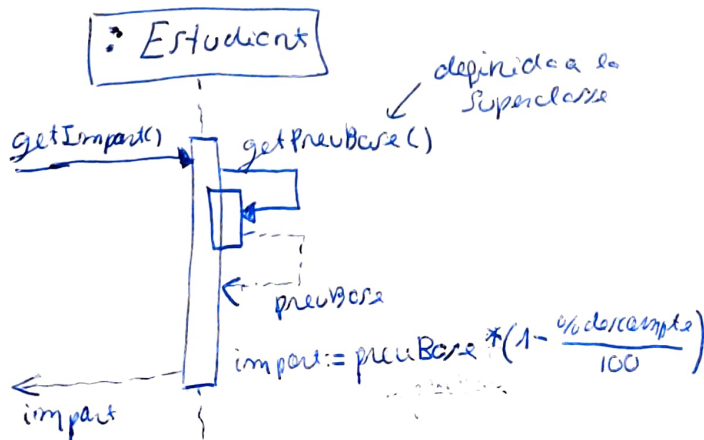 : Estudiant
definida a la
superclasse
getImport()
getPreuBase()
preuBase
import:= preuBase *(1- %descompte
100
)
import